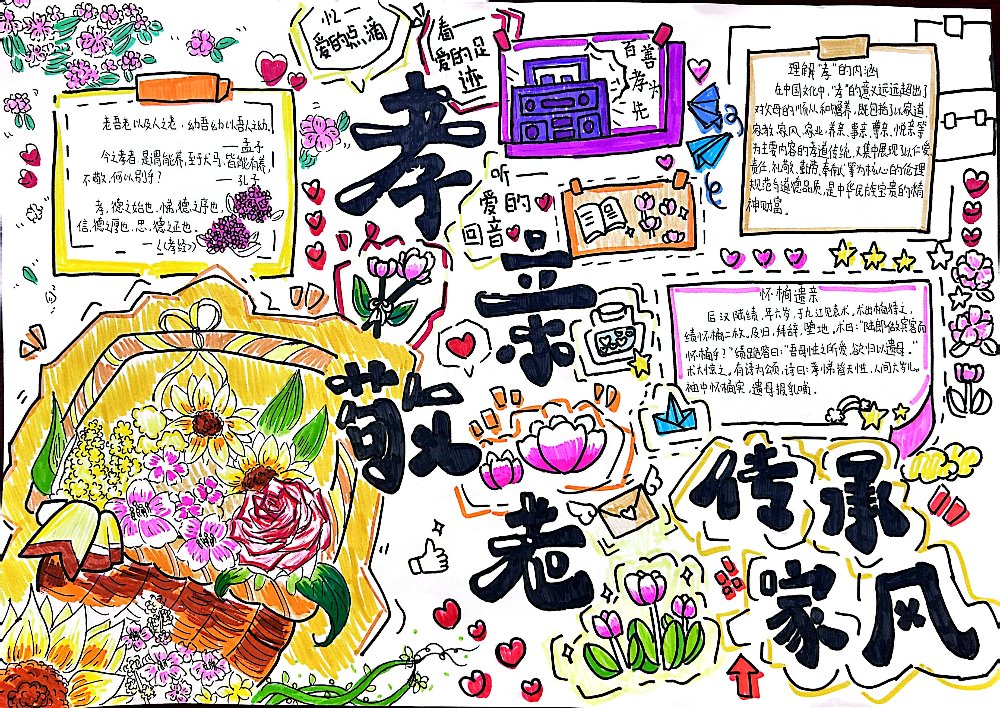 忆一
爱的点滴
看一
爱的足
迹
百善
孝为
先
听一
爱的
回音
孝
亲
敬
老
传承
家风
老吾老以及人之老，幼吾幼以及人之幼。
——孟子
今之孝者，是谓能养，至于犬马，皆能有养，
不敬，何以别乎？
——孔子
孝，德之始也，悌，德之序也，
信，德之厚也，忠，德之正也。
——《孝经》
理解“孝”的内涵
在中国文化中，“孝”的意义远远超出了
对父母的顺从和赡养，既包括了以家道、
家教、家风、家业、养亲、事亲、尊亲、悦亲等
为主要内容的孝道传统，又集中展现了以仁爱、
责任、礼敬、勤勉、奉献等为核心的伦理
规范与道德品质，是中华民族宝贵的精
神财富。
怀橘遗亲
后汉陆绩，年六岁，于九江见袁术，术出橘待之，
绩怀橘二枚。及归，拜辞，堕地，术曰：“陆郎做宾客而
怀橘乎？”绩跪答曰：“吾母性之所爱，欲归以遗母。”
术大惊之。有诗为颂，诗曰：孝悌皆天性，人间六岁儿。
袖中怀橘实，遗母报乳哺。